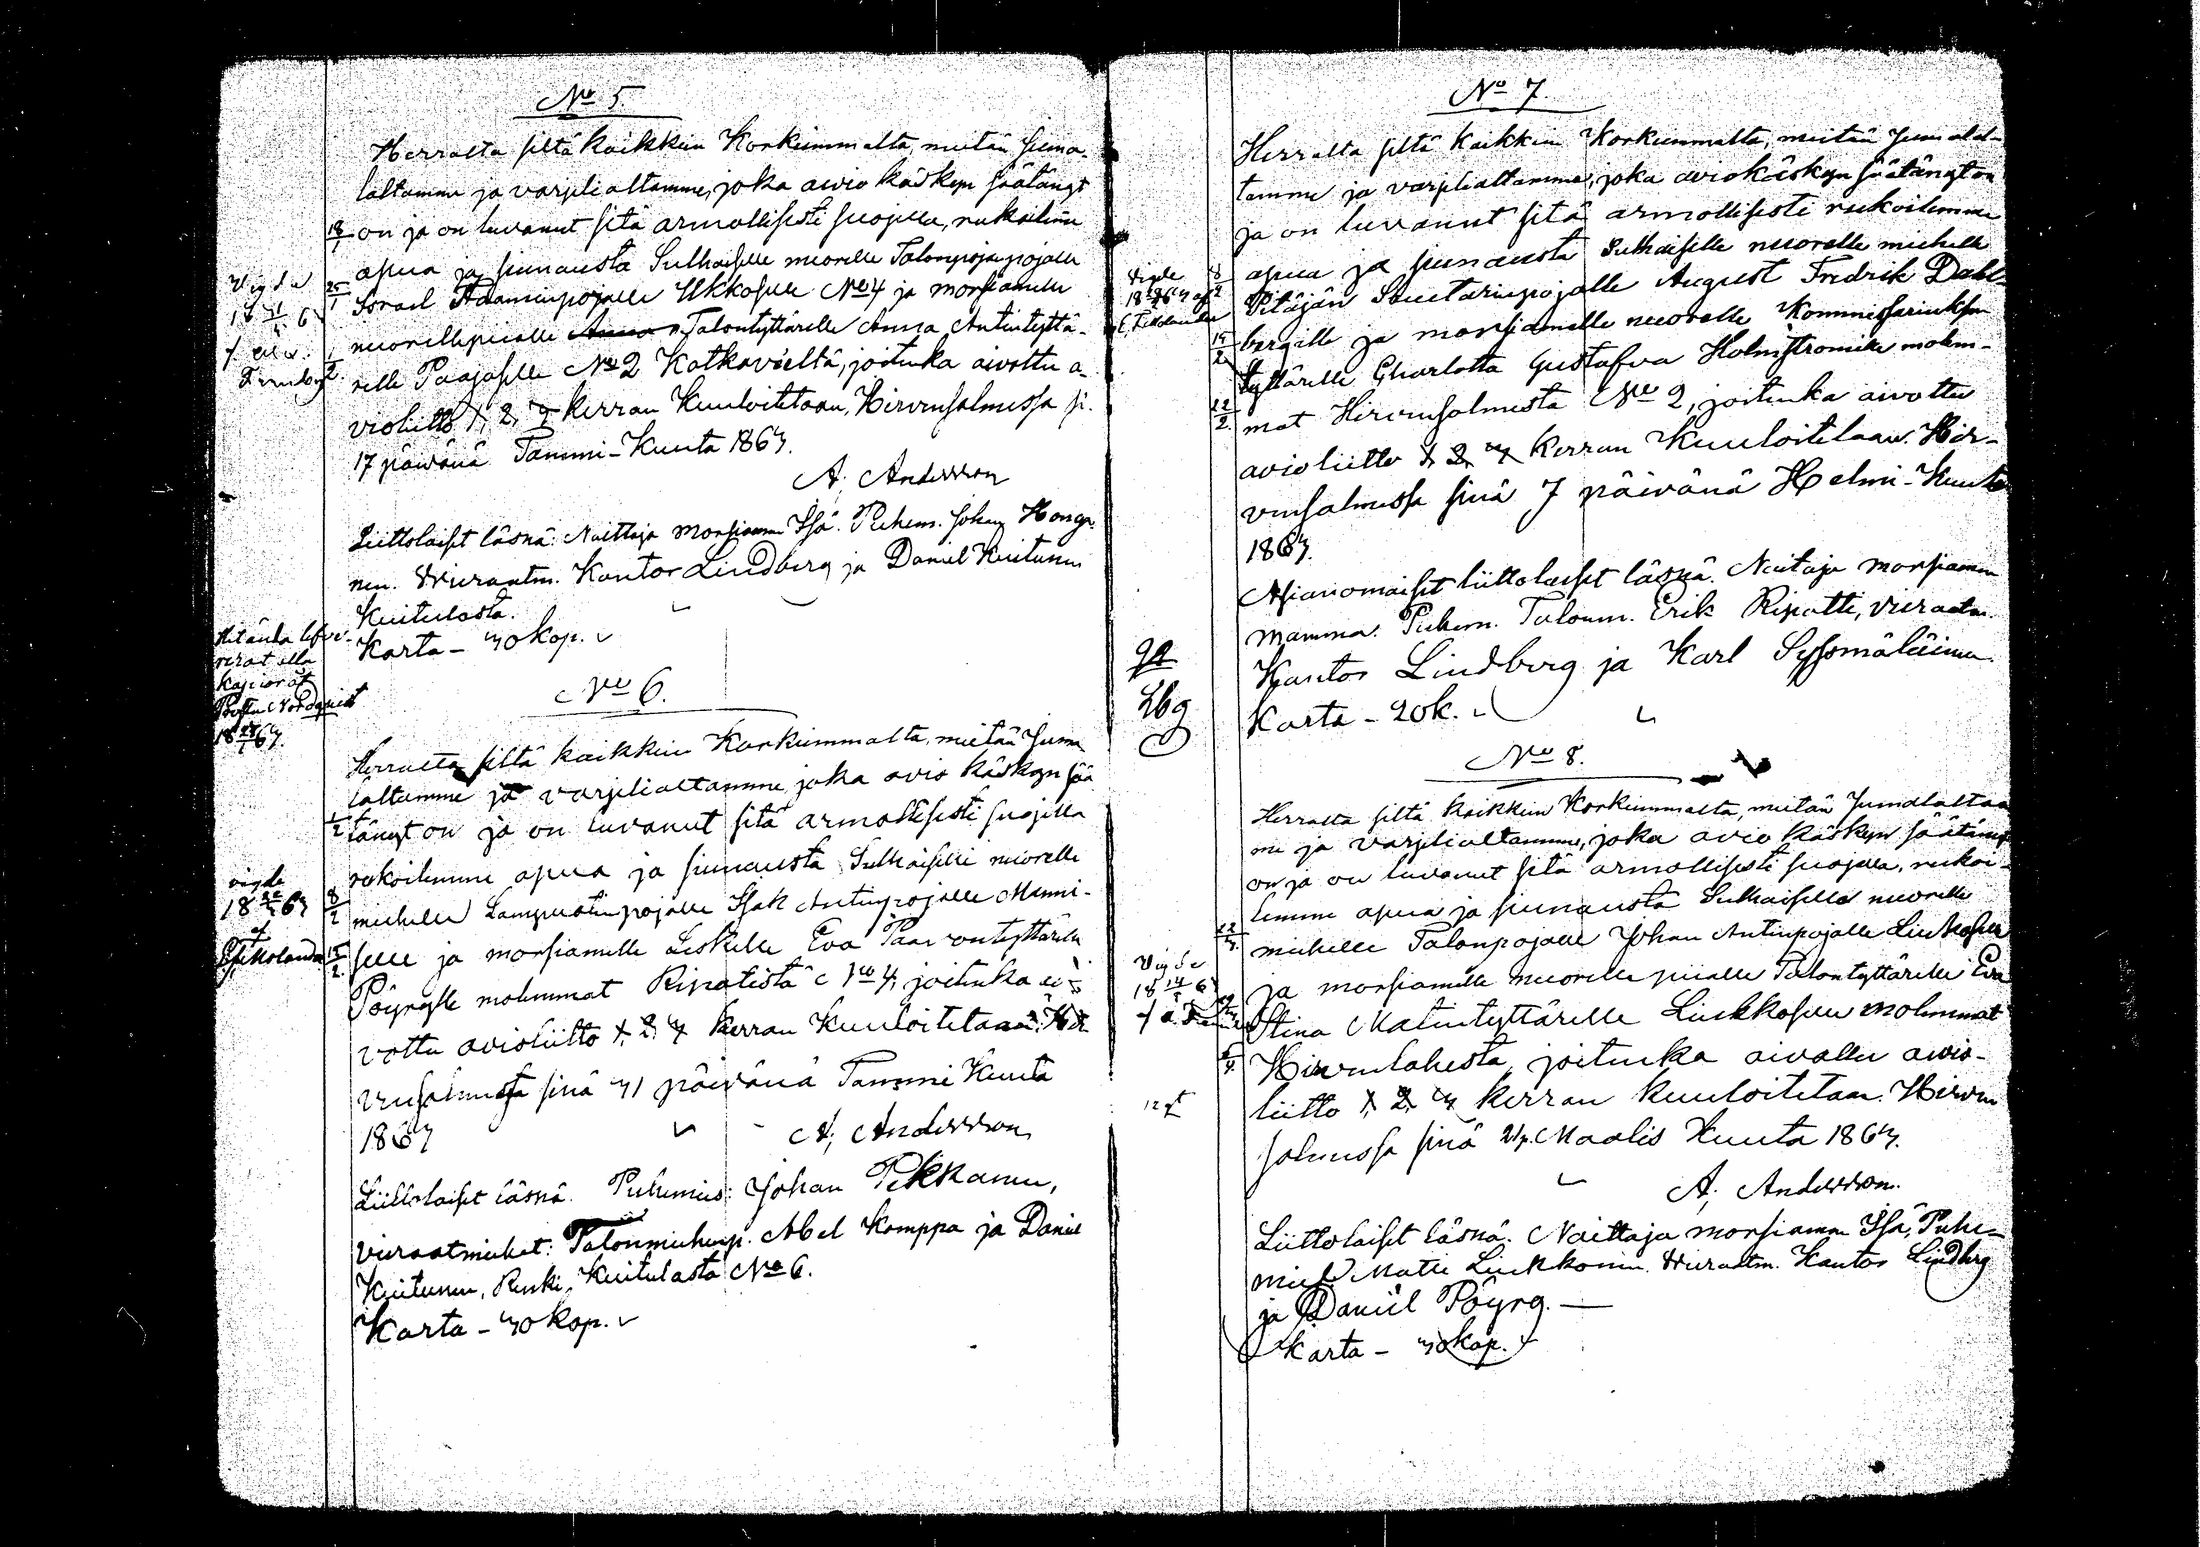 No 5.
Herralta siltä kaikkein Korkeimmalta, meitän Juma-
laltamme ja varjelialtamme, joka avio käskyn säätänyt
18/1 on ja on luvanut sitä armollisesti suojella, rukoilemme
apua ja siunausta Sulhaiselle nuorelle Talonpojanpojalle
25/1 Israel Adaminpojalle Ukkoselle No 4 ja morsiamelle
nuorellepiialle Talontyttärelle Anna Antintyttä-
relle Paajaselle No 2 Kotkavieltä, joitenka aivottu a-
violiitto 1, 2, 3 kerran Kuuloitetaan, Hirvensalmessa si.
17 päivänä Tammi-Kuuta 1863.
A. Andersson
Liittolaiset läsnä: Naittaja morsiamen Isä. Puhem. Johan Honga-
nen. Vieraatm. Kantor Lindberg ja Daniel Kuitunen
Kuitulasta.
Karta - 30 kop.
No 6.
Herralta siltä kaikkein Korkeimmalta, meitän Juma
laltamme ja varjelialtamme, joka avio käskyn sää
1/2 tänyt on ja on luvanut sitä armollisesti suojella
rukoilemme apua ja siunausta Sulhaiselle nuorelle
8/2 miehelle Lampuotinpojalle Isak Antinpojalle Manni-
15/2 selle ja morsiamelle Leskelle Eva Paavontyttärelle
Pöyryselle molemmat Ripatista No 4, joitenka ai-
vottu avioliitto 1, 2, 3 kerran Kuuloitetaan. Hir
vensalmessa sinä 31 päivänä Tammi Kuuta
1863
A. Andersson
Liittolaiset läsnä. Puhemies: Johan Pekkanen,
vieraatmiehet: Talonmiehenp. Abel Komppa ja Daniel
Kuitunen, Renki, Kuitulasta No 6.
Karta - 30 kop.
Vigde
af
Vigde
18 63
af
No 7.
Herralta siltä kaikkein Korkeimmalta, meitän Jumalal-
tamme ja varjelialtamme, joka aviokäskyn säätänyt on
ja on luvanut sitä armollisesti rukoilemme
8/2 apua ja siunausta Sulhaiselle nuorelle miehelle
Pitäjän Suutarinpojalle August Fredrik Dahl-
15/2 bergille ja morsiamelle nuorelle Kommissariuksen
tyttärelle Charlotta Gustafva Holmströmille molem-
22/2 mat Hirvensalmesta No 2, joitenka aivottu
avioliitto 1, 2, 3 kerran Kuuloitetaan. Hir-
vensalmessa sinä 7 päivänä Helmi-Kuuta
1863.
Asianomaiset liittolaiset läsnä. Naitaja morsiamen
mamma. Puhem. Talonm. Erik Ripatti, vieraatm.
Kantor Lindberg ja Karl Syssmäläinen.
Karta - 20 k.
Lbg
No 8.
Herralta siltä kaikkein Korkeimmalta, meitän Jumalaltam
me ja varjelialtamme, joka avio käskyn säätänyt
on ja on luvanut sitä armollisesti suojella, rukoi-
lemme apua ja siunausta Sulhaiselle nuorelle
22/3 miehelle Talonpojalle Johan Antinpojalle Liukkoselle
ja morsiamelle nuorelle piialle Talontyttärelle Eva
Stina Matintyttärelle Liukkoselle molemmat
Hirvenlahesta, joitenka aivottu avio-
liitto 1, 2, 3 kerran kuuloitetaan. Hirven
salmessa sinä 21 p. Maalis Kuuta 1863.
A. Andersson.
Liittolaiset läsnä. Naittaja morsiamen Isä, Puhe-
mies Matti Liukkonen. Vieraatm. Kantor Lindberg
ja Daniel Pöyry. —
Karta - 30 kop.
Vigde